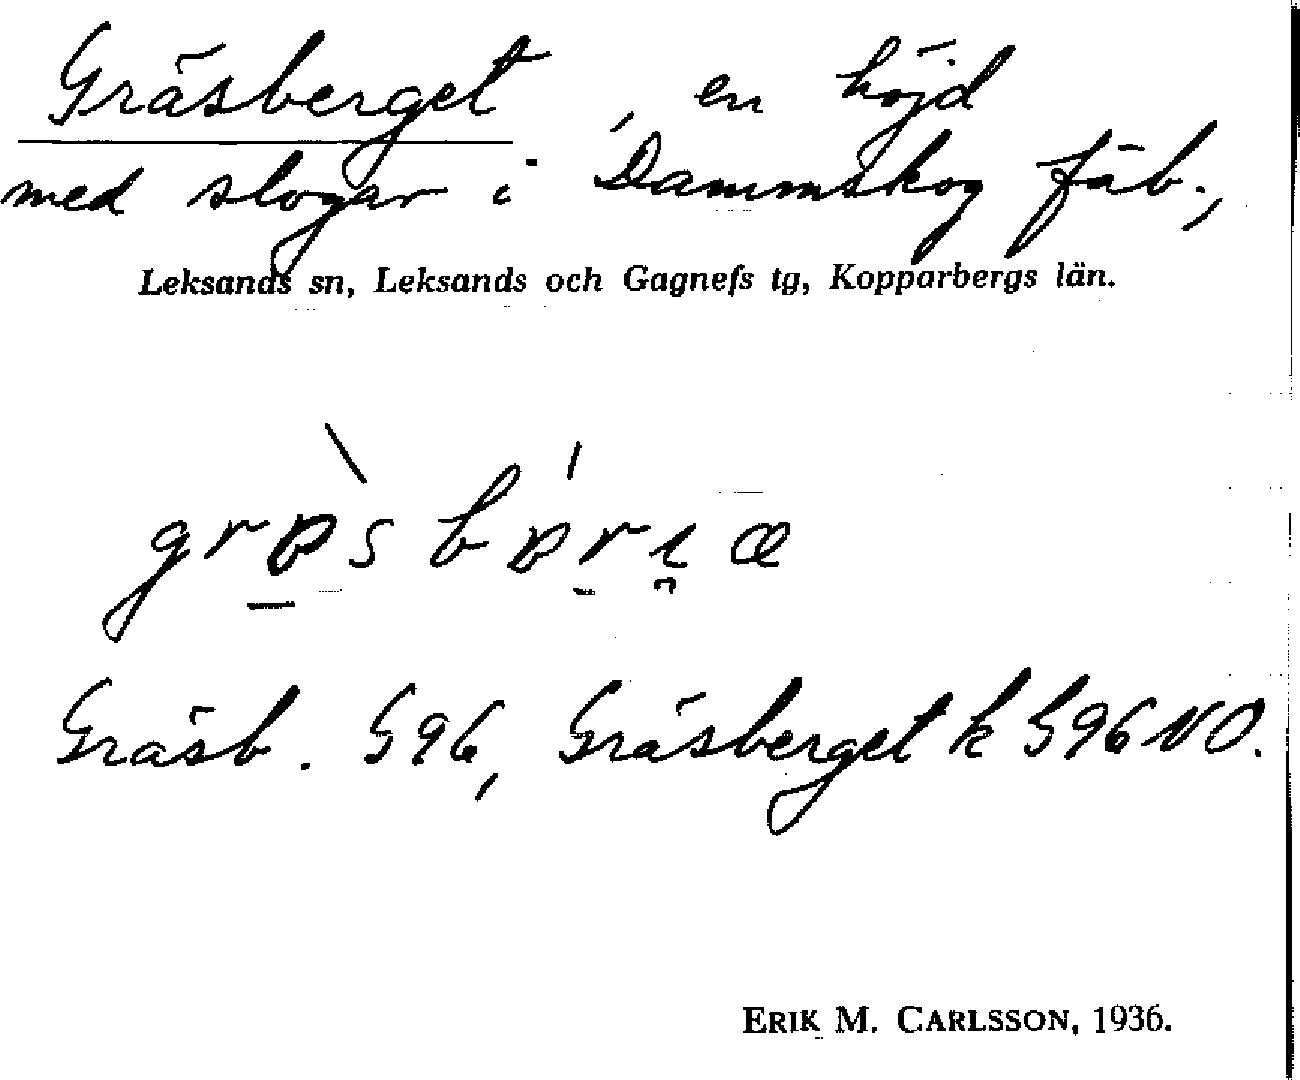 Gräsberget, en höjd
med slogar i Dammskog fäb.,
Leksands sn, Leksands och Gagnefs tg, Kopparbergs län.
Gräsb. G96, Gräsberget k G96NO.
ERIK M. CARLSSON, 1936.